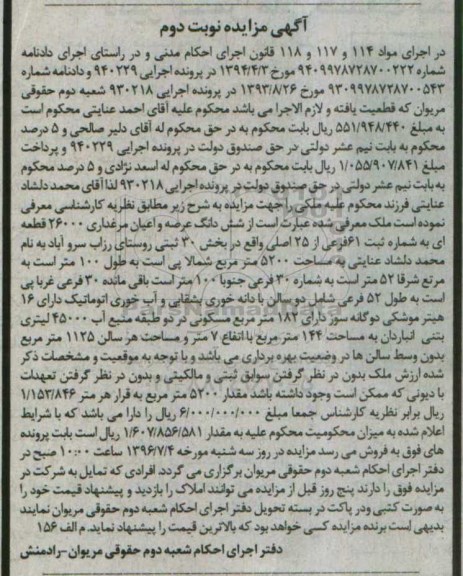 آگهی مزایده نوبت دوم
در اجرای مواد ۱۱۴ و ۱۱۷ و ۱۱۸ قانون اجرای احکام مدنی و در راستای اجرای دادنامه
شماره ۹۴۰۹۹۷۸۷۲۸۷۰۰۲۲۲ مورخ ۱۳۹۴/۴/۳ در پرونده اجرایی ۹۴۰۲۲۹ و دادنامه شماره
۹۳۰۹۹۷۸۷۲۸۷۰۰۵۴۳ مورخ ۱۳۹۳/۸/۲۶ در پرونده اجرایی ۹۳۰۲۱۸ شعبه دوم حقوقی
مریوان که قطعیت یافته و لازم الاجرا می باشد محکوم علیه آقای احمد عنایتی محکوم است
به مبلغ ۵۵۱/۹۴۸/۴۴۰ ریال بابت محکوم به در حق محکوم له آقای دلیر صالحی و ۵ درصد
محکوم به بابت نیم عشر دولتی در حق صندوق دولت در پرونده اجرایی ۹۴۰۲۲۹ و پرداخت
مبلغ ۱/۰۵۵/۹۰۷/۸۴۱ ریال بابت محکوم به در حق محکوم له اسعد نژادی و ۵ درصد محکوم
به بابت نیم عشر دولتی در حق صندوق دولت در پرونده اجرایی ۹۳۰۲۱۸ لذا آقای محمد دلشاد
عنایتی فرزند محکوم علیه ملکی را جهت مزایده به شرح زیر مطابق نظریه کارشناسی معرفی
نموده است ملک معرفی شده عبارت است از شش دانگ عرصه و اعیان مرغداری ۲۶۰۰۰ قطعه
ای به شماره ثبت ۶۱فرعی از ۲۵ اصلی واقع در بخش ۳۰ ثبتی روستای رزاب سرو آباد به نام
محمد دلشاد عنایتی به مساحت ۵۲۰۰ متر مربع شمالا پی است به طول ۱۰۰ متر است به
مرتع شرقا ۵۲ متر است به شماره ۳۰ فرعی جنوبا ۱۰۰ متر است باقی مانده ۳۰ فرعی غربا پی
است به طول ۵۲ فرعی شامل دو سالن با دانه خوری بشقابی و آب خوری اتوماتیک دارای ۱۶
هیتر موشکی دوگانه سوز دارای ۱۸۲ متر مربع مسکونی در دو طبقه منبع آب ۴۵۰۰۰ لیتری
بتنی انباردان به مساحت ۱۴۴ متر مربع با اتفاع ۷ متر و مساحت هر سالن ۱۱۲۵ متر مربع
بدون وسط سالن ها در وضعیت بهره برداری می باشد و با توجه به موقعیت و مشخصات ذکر
شده ارزش ملک بدون در نظر گرفتن سوابق ثبتی و مالکیتی و بدون در نظر گرفتن تعهدات
با دیونی که ممکن است وجود داشته باشد مقدار ۵۲۰۰ متر مربع به قرار هر متر ۱/۱۵۳/۸۴۶
ریال برابر نظریه کارشناس جمعا مبلغ ۶/۰۰۰/۰۰۰/۰۰۰ ریال را دارا می باشد که با شرایط
اعلام شده به میزان محکومیت محکوم علیه به مقدار ۱/۶۰۷/۸۵۶/۵۸۱ ریال است بابت پرونده
های فوق به فروش می رسد مزایده در روز سه شنبه مورخه ۱۳۹۶/۷/۴ ساعت ۱۰:۰۰ صبح در
دفتر اجرای احکام شعبه دوم حقوقی مریوان برگزاری می گردد. افرادی که تمایل به شرکت در
مزایده فوق را دارند پنج روز قبل از مزایده می توانند املاک را بازدید و پیشنهاد قیمت خود را
به صورت کتبی ودر پاکت در بسته تحویل دفتر اجرای احکام شعبه دوم حقوقی مریوان نمایند
بدیهی است برنده مزایده کسی خواهد بود که بالاترین قیمت را پیشنهاد نماید. م الف ۱۵۶
دفتر اجرای احکام شعبه دوم حقوقی مریوان-رادمنش